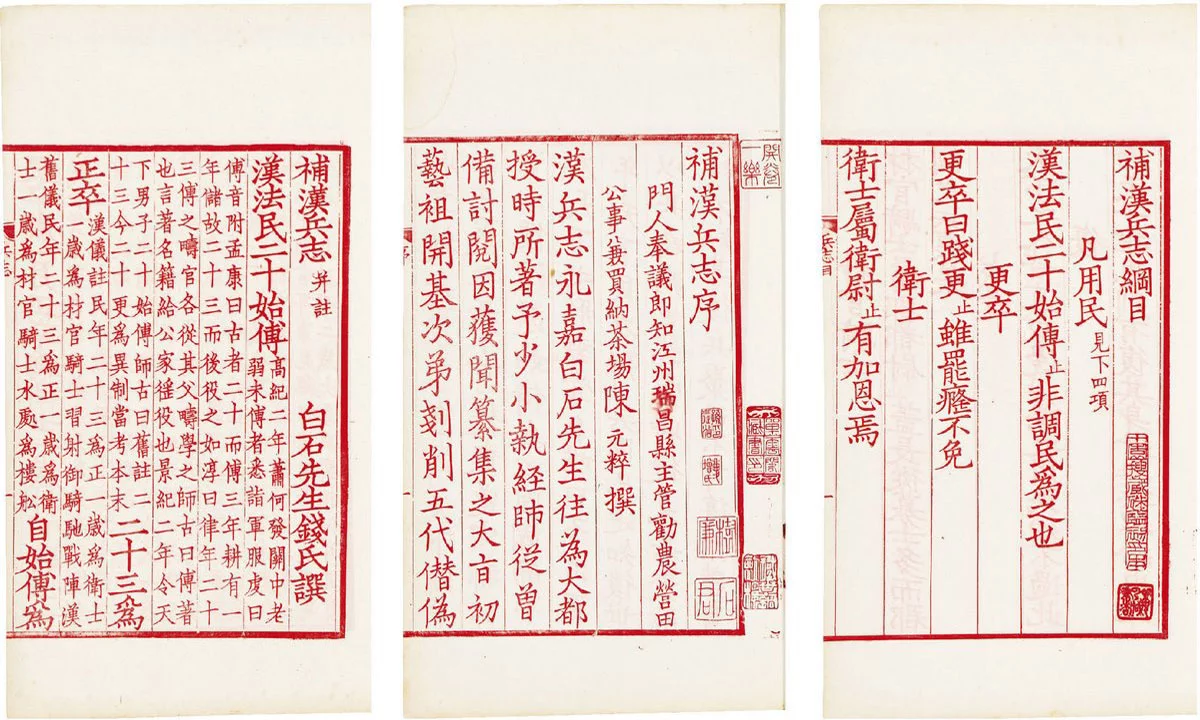 補漢兵志綱目
凡用民 見下四項
漢法民二十始傅止非調民為之也
更卒
更卒曰踐更止雖罷癃不免
衛士
衛士屬衛尉止有加恩焉
兵志目
開卷一樂
補漢兵志序
門人奉議郎知江州瑞昌縣主管勸農營田
公事兼買納茶場陳 元粹 撰
漢兵志永嘉白石先生往為大都
授時所著予少小執經師從曾
備討閱因獲聞纂集之大旨初
藝祖開基次弟剗削五代僭偽
序
補漢兵志 并註
白石先生錢氏譔
漢法民二十始傅 高紀二年蕭何發關中老
弱未傅者悉詣軍服虔曰
傅音附孟康曰古者二十而傅三年耕有一
年儲故二十三而後役之如淳曰律年二十
三傅之疇官各從其父疇學之師古曰傅著
也言著名籍給公家徭役也景紀二年令天
下男子二十始傅師古曰舊註二
十三今二十更爲異制當考本末 二十三爲
正卒 漢儀註民年二十三爲正一歲爲衛士
一歲爲材官騎士習射御騎馳戰陣漢
舊儀民年二十三爲正一歲爲衛
士一歲爲材官騎士水處爲樓舩 自始傅爲
兵志